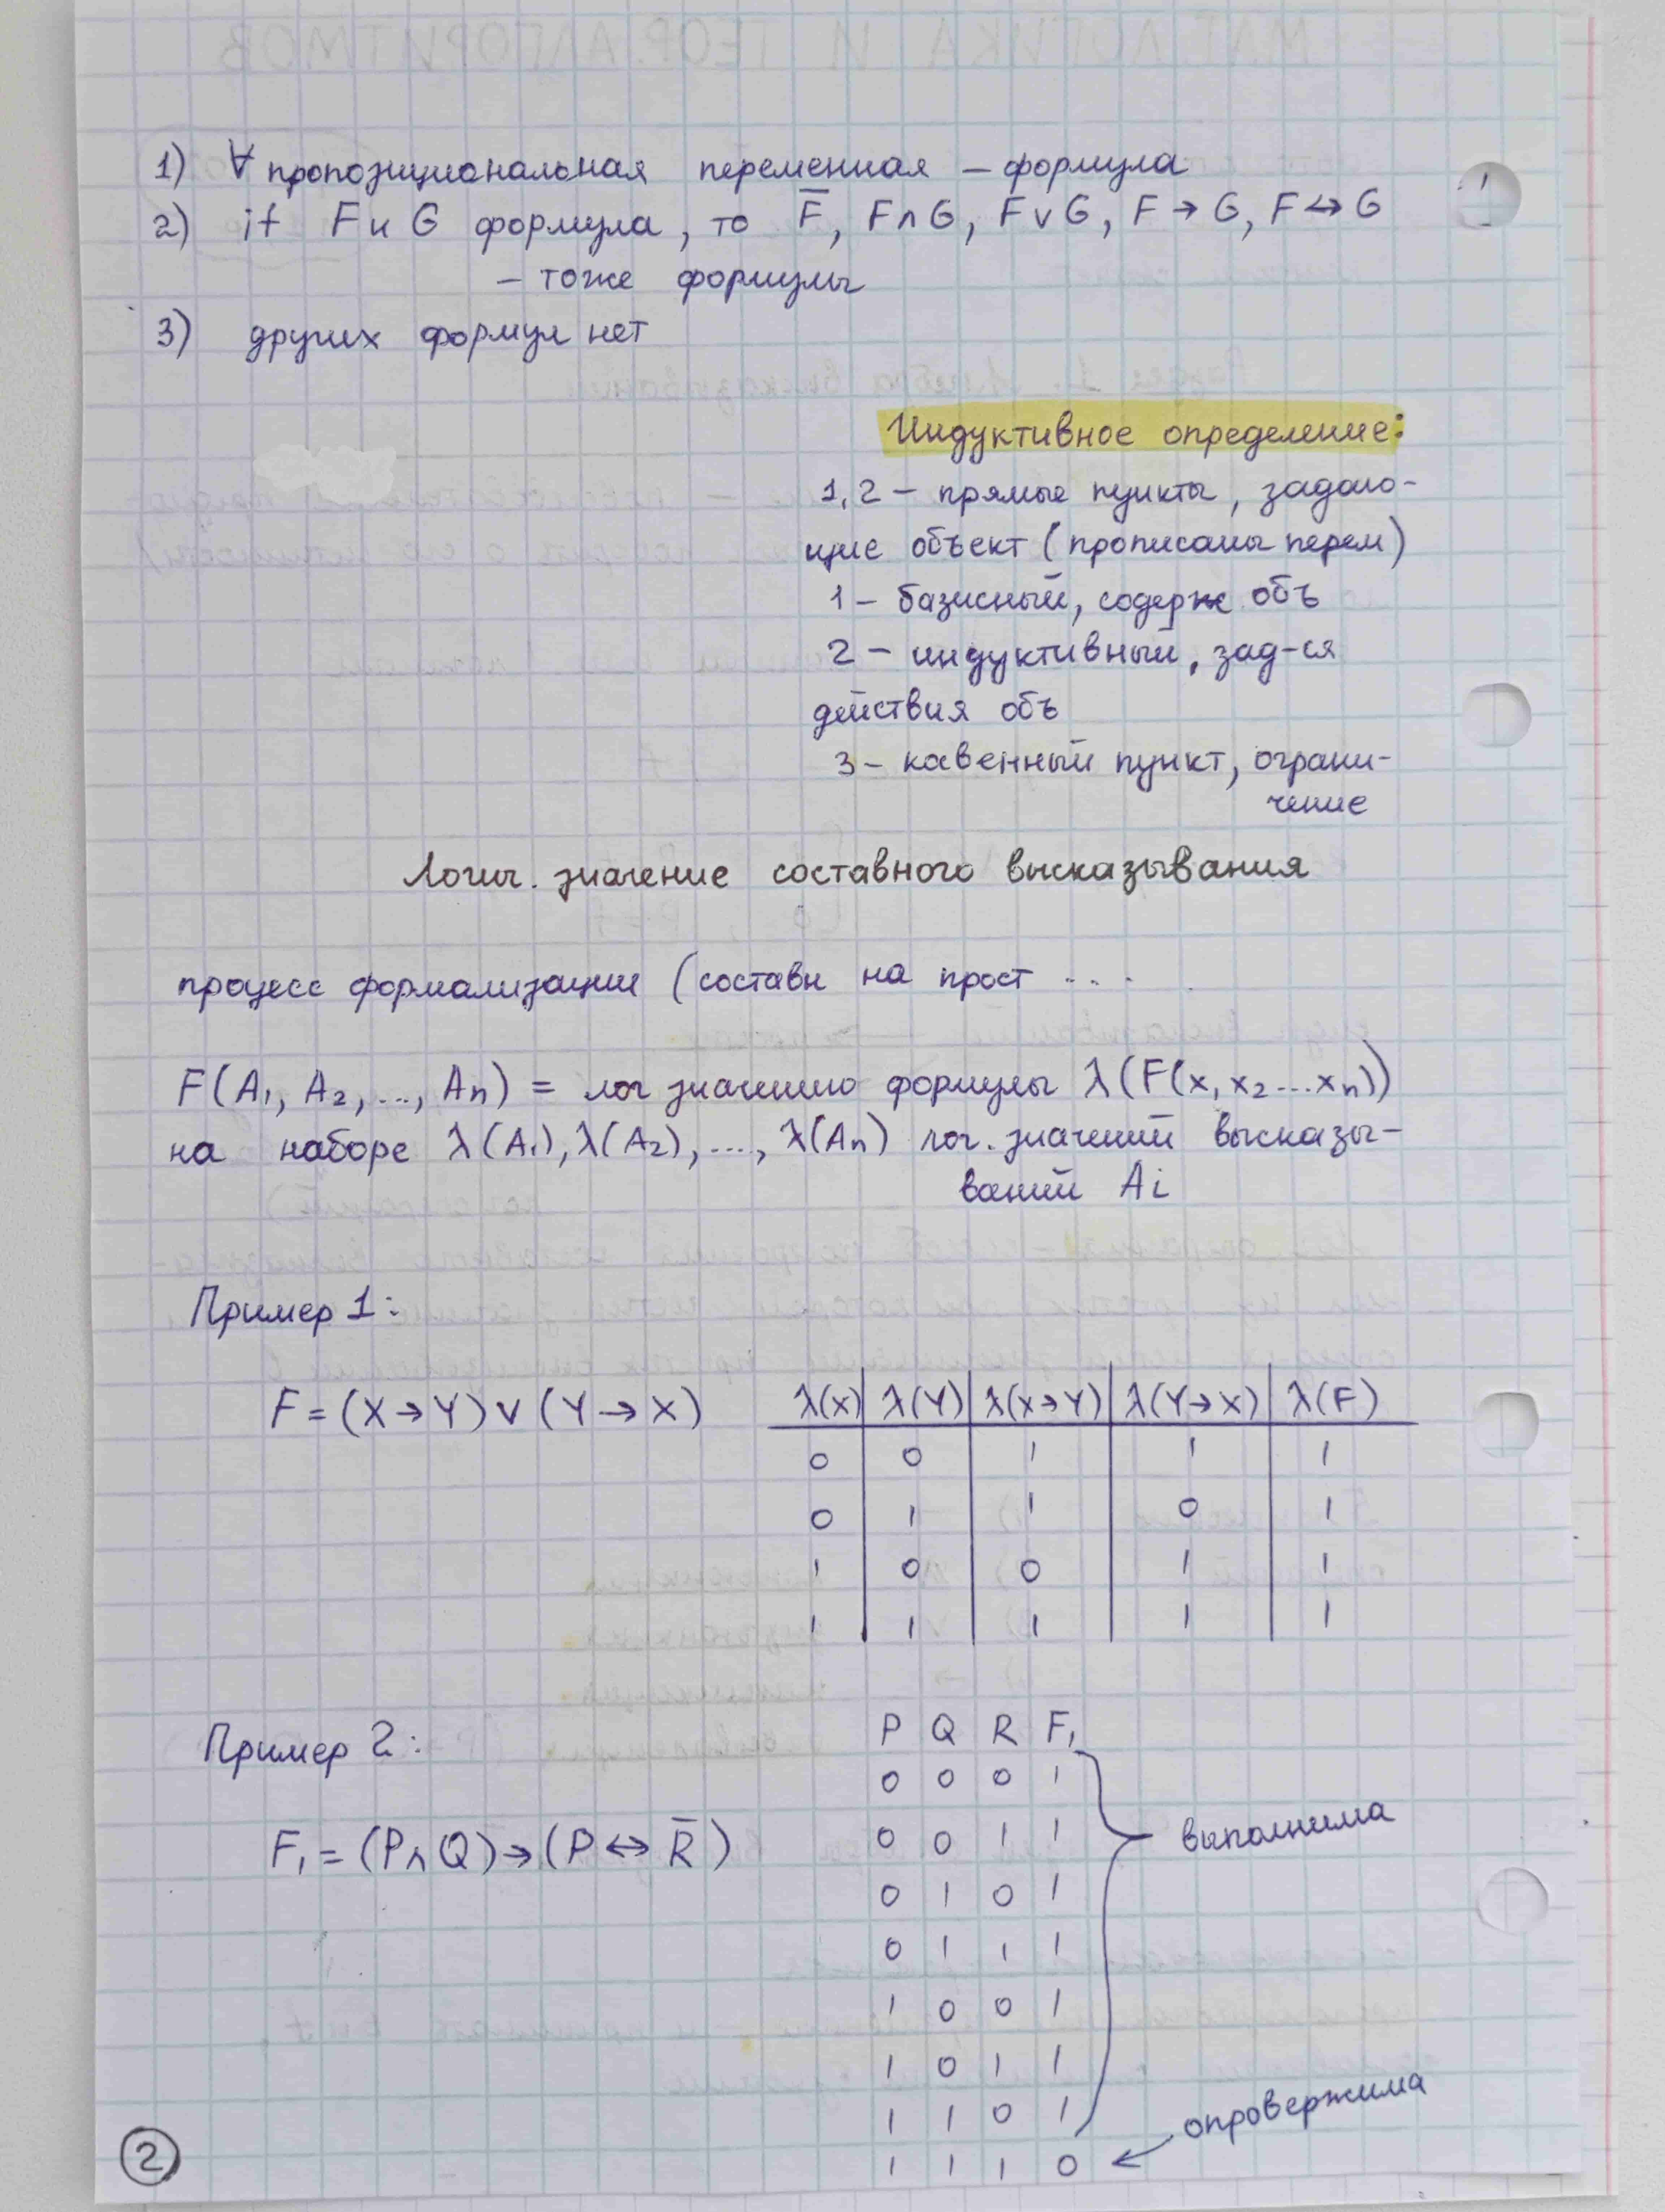 1) ∀ пропозициональная переменная – формула
2) if F и G формула, то F̅, F∧G, F∨G, F→G, F↔G
– тоже формулы
3) других формул нет
Индуктивное определение:
1,2 – прямые пункты, задаю-
щие объект (прописаны перем)
1 – базисный, содерж объ
2 – индуктивный, зад-ся
действия объ
3 – кавенный пункт, ограни-
чение
Логич. значение составного высказывания
процесс формализации (составн на прост ....
F(A₁, A₂, ..., Aₙ) = лог значению формулы λ(F(x₁ x₂ ... xₙ))
на наборе λ(A₁), λ(A₂), ..., λ(Aₙ) лог. значений высказы-
ваний Ai
Пример 1:
F = (X→Y) ∨ (Y→X)
λ(x) λ(Y) λ(x→Y) λ(Y→X) λ(F)
0 0 1 1 1
0 1 1 0 1
1 0 0 1 1
1 1 1 1 1
Пример 2:
F₁ = (P∧Q)→(P↔R̅)
P Q R F₁
0 0 0 1
0 0 1 1
0 1 0 1
0 1 1 1
1 0 0 1
1 0 1 1
1 1 0 1
1 1 1 0
выполнима
опровержима
2